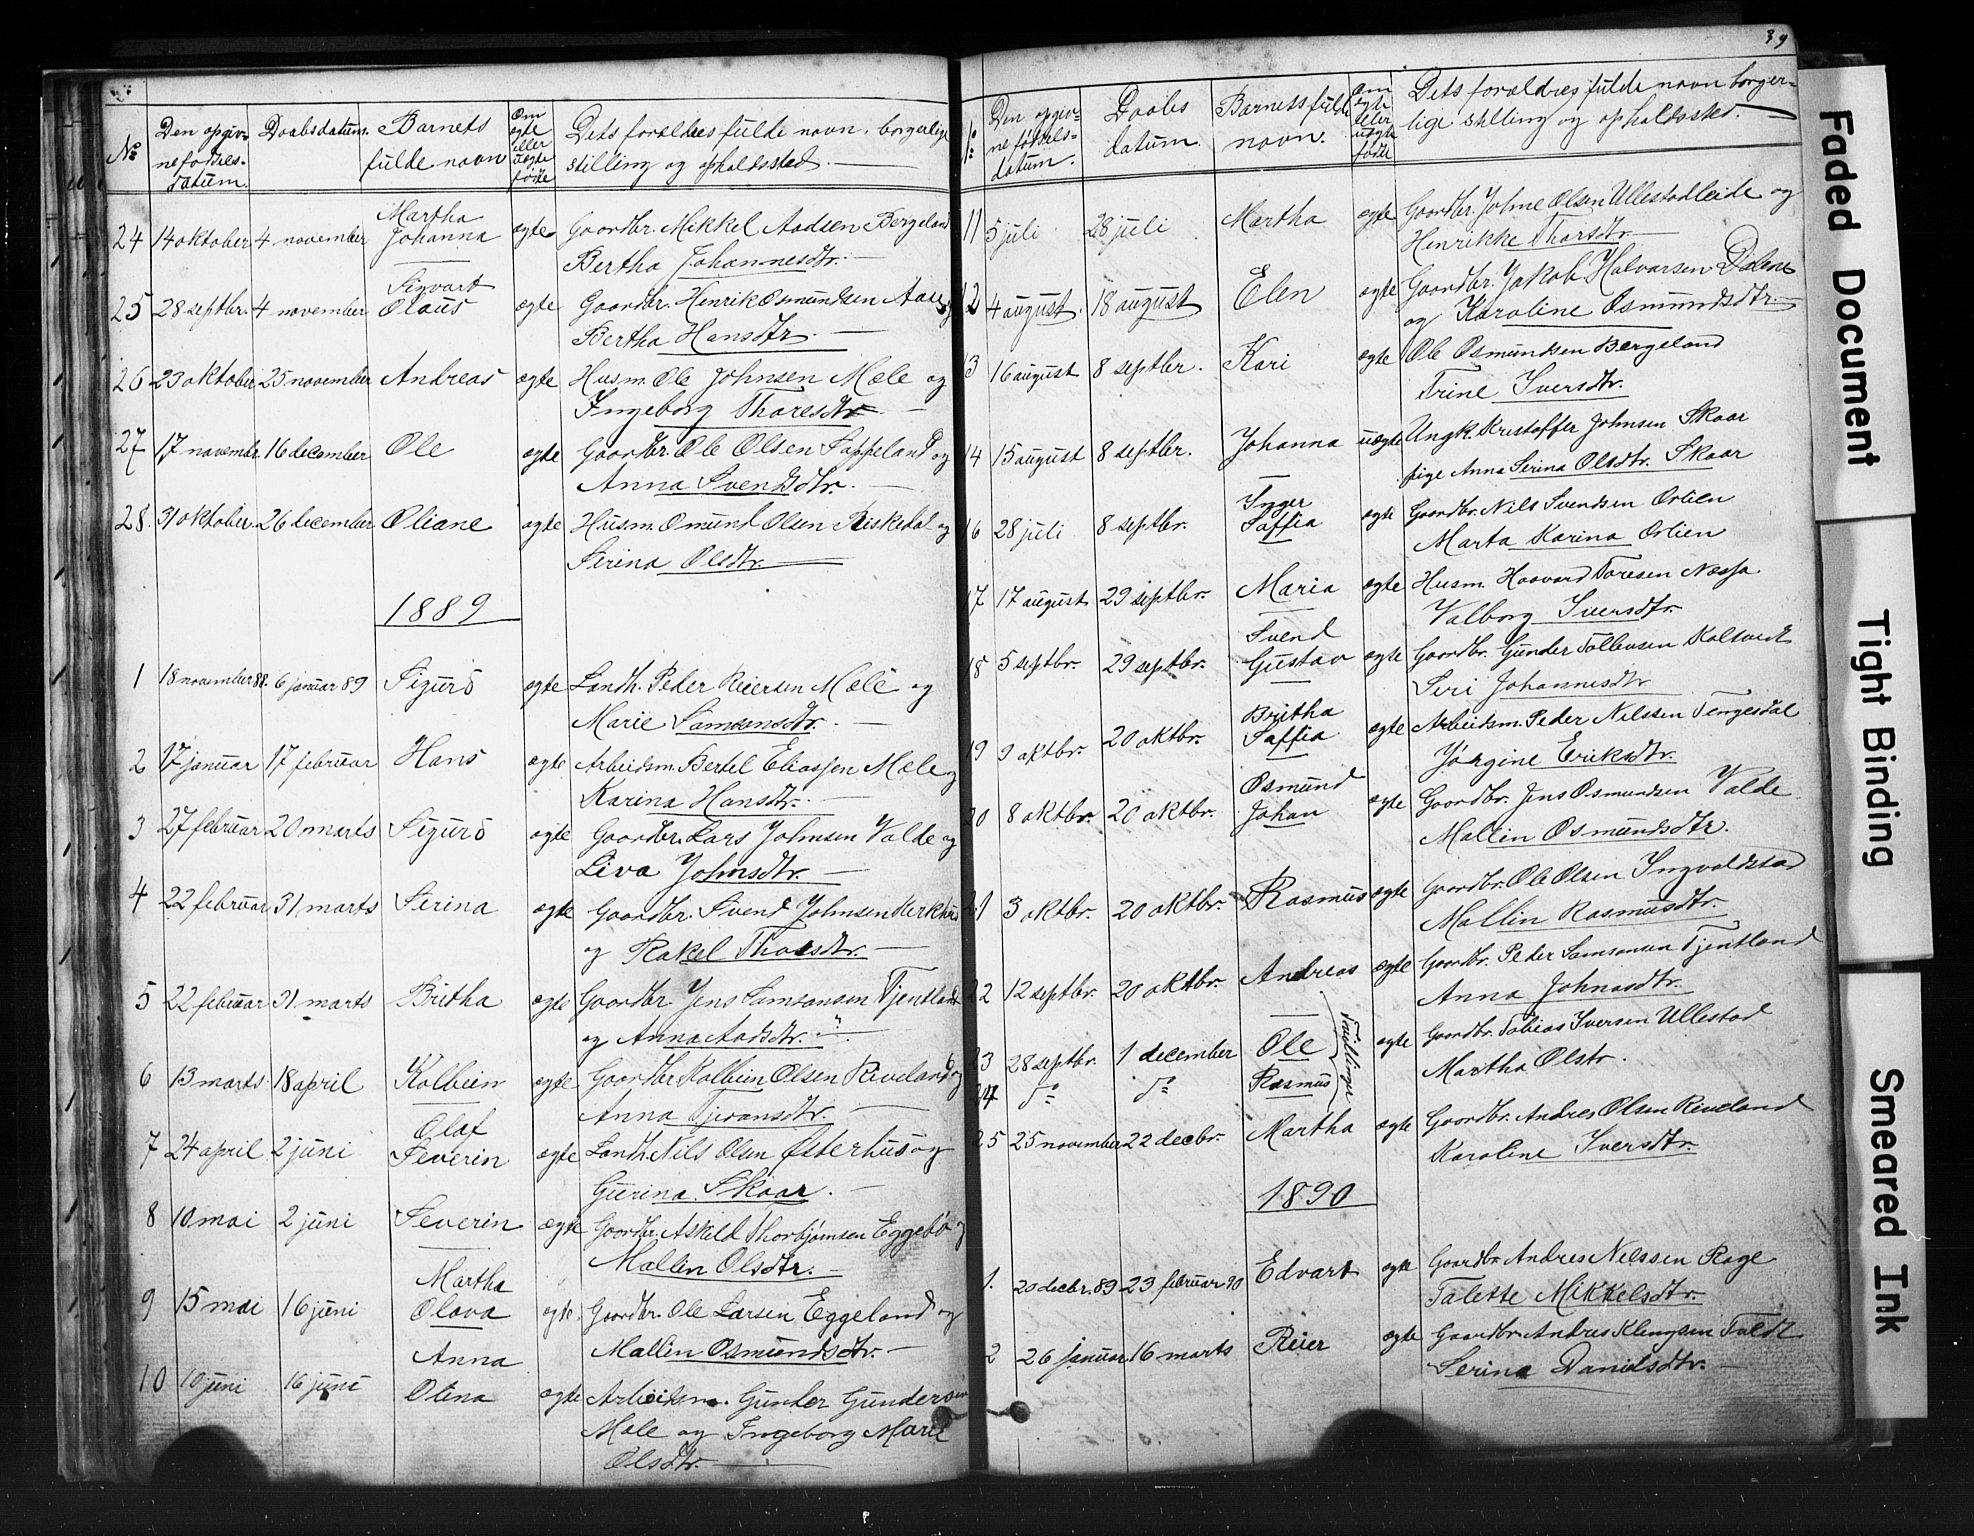 39
No Den opgivne fødselsdatum. Daabsdatum. Barnets fulde navn Om ægte eller uægte fødte Dets forældres fulde navn, borgerlige stilling og opholdssted.
24 14 oktober 4 november Martha Johanna ægte Gaardbr. Mikkel Aadsen Bergeland
Bertha Johannesdtr.
25 28 septbr. 4 november Sigvart Olaus ægte Gaardbr. Henrik Osmundsen Aase og
Bertha Hansdtr.
26 23 oktober 25 november Andreas ægte Husm. Ole Johnsen Mæle og
Ingeborg Tharesdtr.
27 17 novembr. 16 december Ole ægte Gaardbr. Ole Olsen Sappeland og
Anna Svendsdtr.
28. 31 oktober. 26 december Oliane ægte Husm. Osmund Olsen Riskedal og
Serina Olsdtr.
1889
1 18 november 88. 6 januar 89 Sigurd ægte Landh. Peder Reiersen Mæle og
Marie Samsonsdtr.
2 17 januar 17 februar Hans ægte Arbeidsm. Bertel Eliassen Mæle og
Karina Hansdtr.
3 27 februar 20 marts Sigurd ægte Gaardbr. Lars Johnsen Valde og
Liva Johnsdtr.
4 22 februar 31 marts Serina ægte Gaardbr. Svend Johnsen Kirkhus
og Rakel Tharsdtr.
5 22 februar 31 marts Britha ægte Gaardbr. Jens Samsonsen Tjentland
og Anna Aadsdtr.
6 13 marts 18 april Kolbein ægte Gaardbr. Kolbein Olsen Riveland og
Anna Tjeransdtr.
7 24 april 2 juni Olaf Severin ægte Landh. Nils Olsen Østerhus og
Gurina Skaar.
8 10 mai 2 juni Severin ægte Gaardbr. Askeld Thorbjørnsen Eggebø og
Mallin Olsdtr.
9 15 mai 16 juni Martha Olava ægte. Gaardbr. Ole Larsen Eggeland og
Mallin Osmundsdtr.
10 10 juni 16 juni Anna Olina ægte Arbeidsm. Gunder Gundersen
Mæle og Ingeborg Marie
Olsdtr.
No: Den opgivne fødselsdatum. Daabsdatum. Barnets fulde navn. Om ægte eller uægte fødte Dets forældres fulde navn borgerlige stilling og opholdssted.
11 5 juli 28 juli Martha ægte Gaardbr. Johne Olsen Ullestadleide og
Henrikke Tharsdtr.
12 4 august. 18 august Elen ægte Gaardbr. Jakob Halvorsen Dalene
og Karoline Osmundsdtr.
13 16 august 8 septbr. Kari ægte Ole Osmundsen Bergeland
Trine Iversdtr.
14 15 august 8 septbr. Johanna uægte Ungk. Kristoffer Johnsen Skaar
pige Anna Serina Olsdtr. Skaar
16 28 juli 8 septbr. Inger Saffia ægte Gaardbr. Nils Svendsen Østien
Marta Karina Østien
17 17 august 29 septbr. Maria ægte Husm. Haavard Toresen Næssa
Valborg Iversdtr.
18 5 septbr. 29 septbr. Svend Gustav ægte Gaardbr. Gunder Tollevsen Kaltvedt
Siri Johannesdtr
19 9 oktbr. 20 oktbr. Britha Saffia ægte Arbeidsm. Peder Nilssen Tengesdal
Jørgine Eriksdtr.
20 8 oktbr. 20 oktbr. Osmund Johan ægte Gaardbr. Jens Osmundsen Valde
Mallin Osmundsdtr.
21 3 oktbr. 20 oktbr. Rasmus ægte Gaardbr. Ole Olsen Ingvaldstad
Mallin Rasmusdtr.
22 12 septbr. 20 oktbr. Andreas ægte Gaardbr. Peder Samsonsen Tjentland
Anna Johnasdtr.
23 28 septbr. 1 december Ole Tvillinger ægte Gaardbr. Tobias Iversen Ullestad
24 do do Rasmus Martha Olsdtr.
25 25 november 22 decbr. Martha ægte Gaardbr. Andres Olsen Riveland
Karoline Iversdtr.
1890
1. 20 decbr. 89 23 februar 90 Edvart ægte Gaardbr. Andres Nilssen Rage
Talette Mikkelsdtr.
2 26 januar 16 marts Reier ægte Gaardbr. Andres Klengsen Tveidt
Serina Danielsdtr.
Faded Document
Tight Binding
Smeared Ink